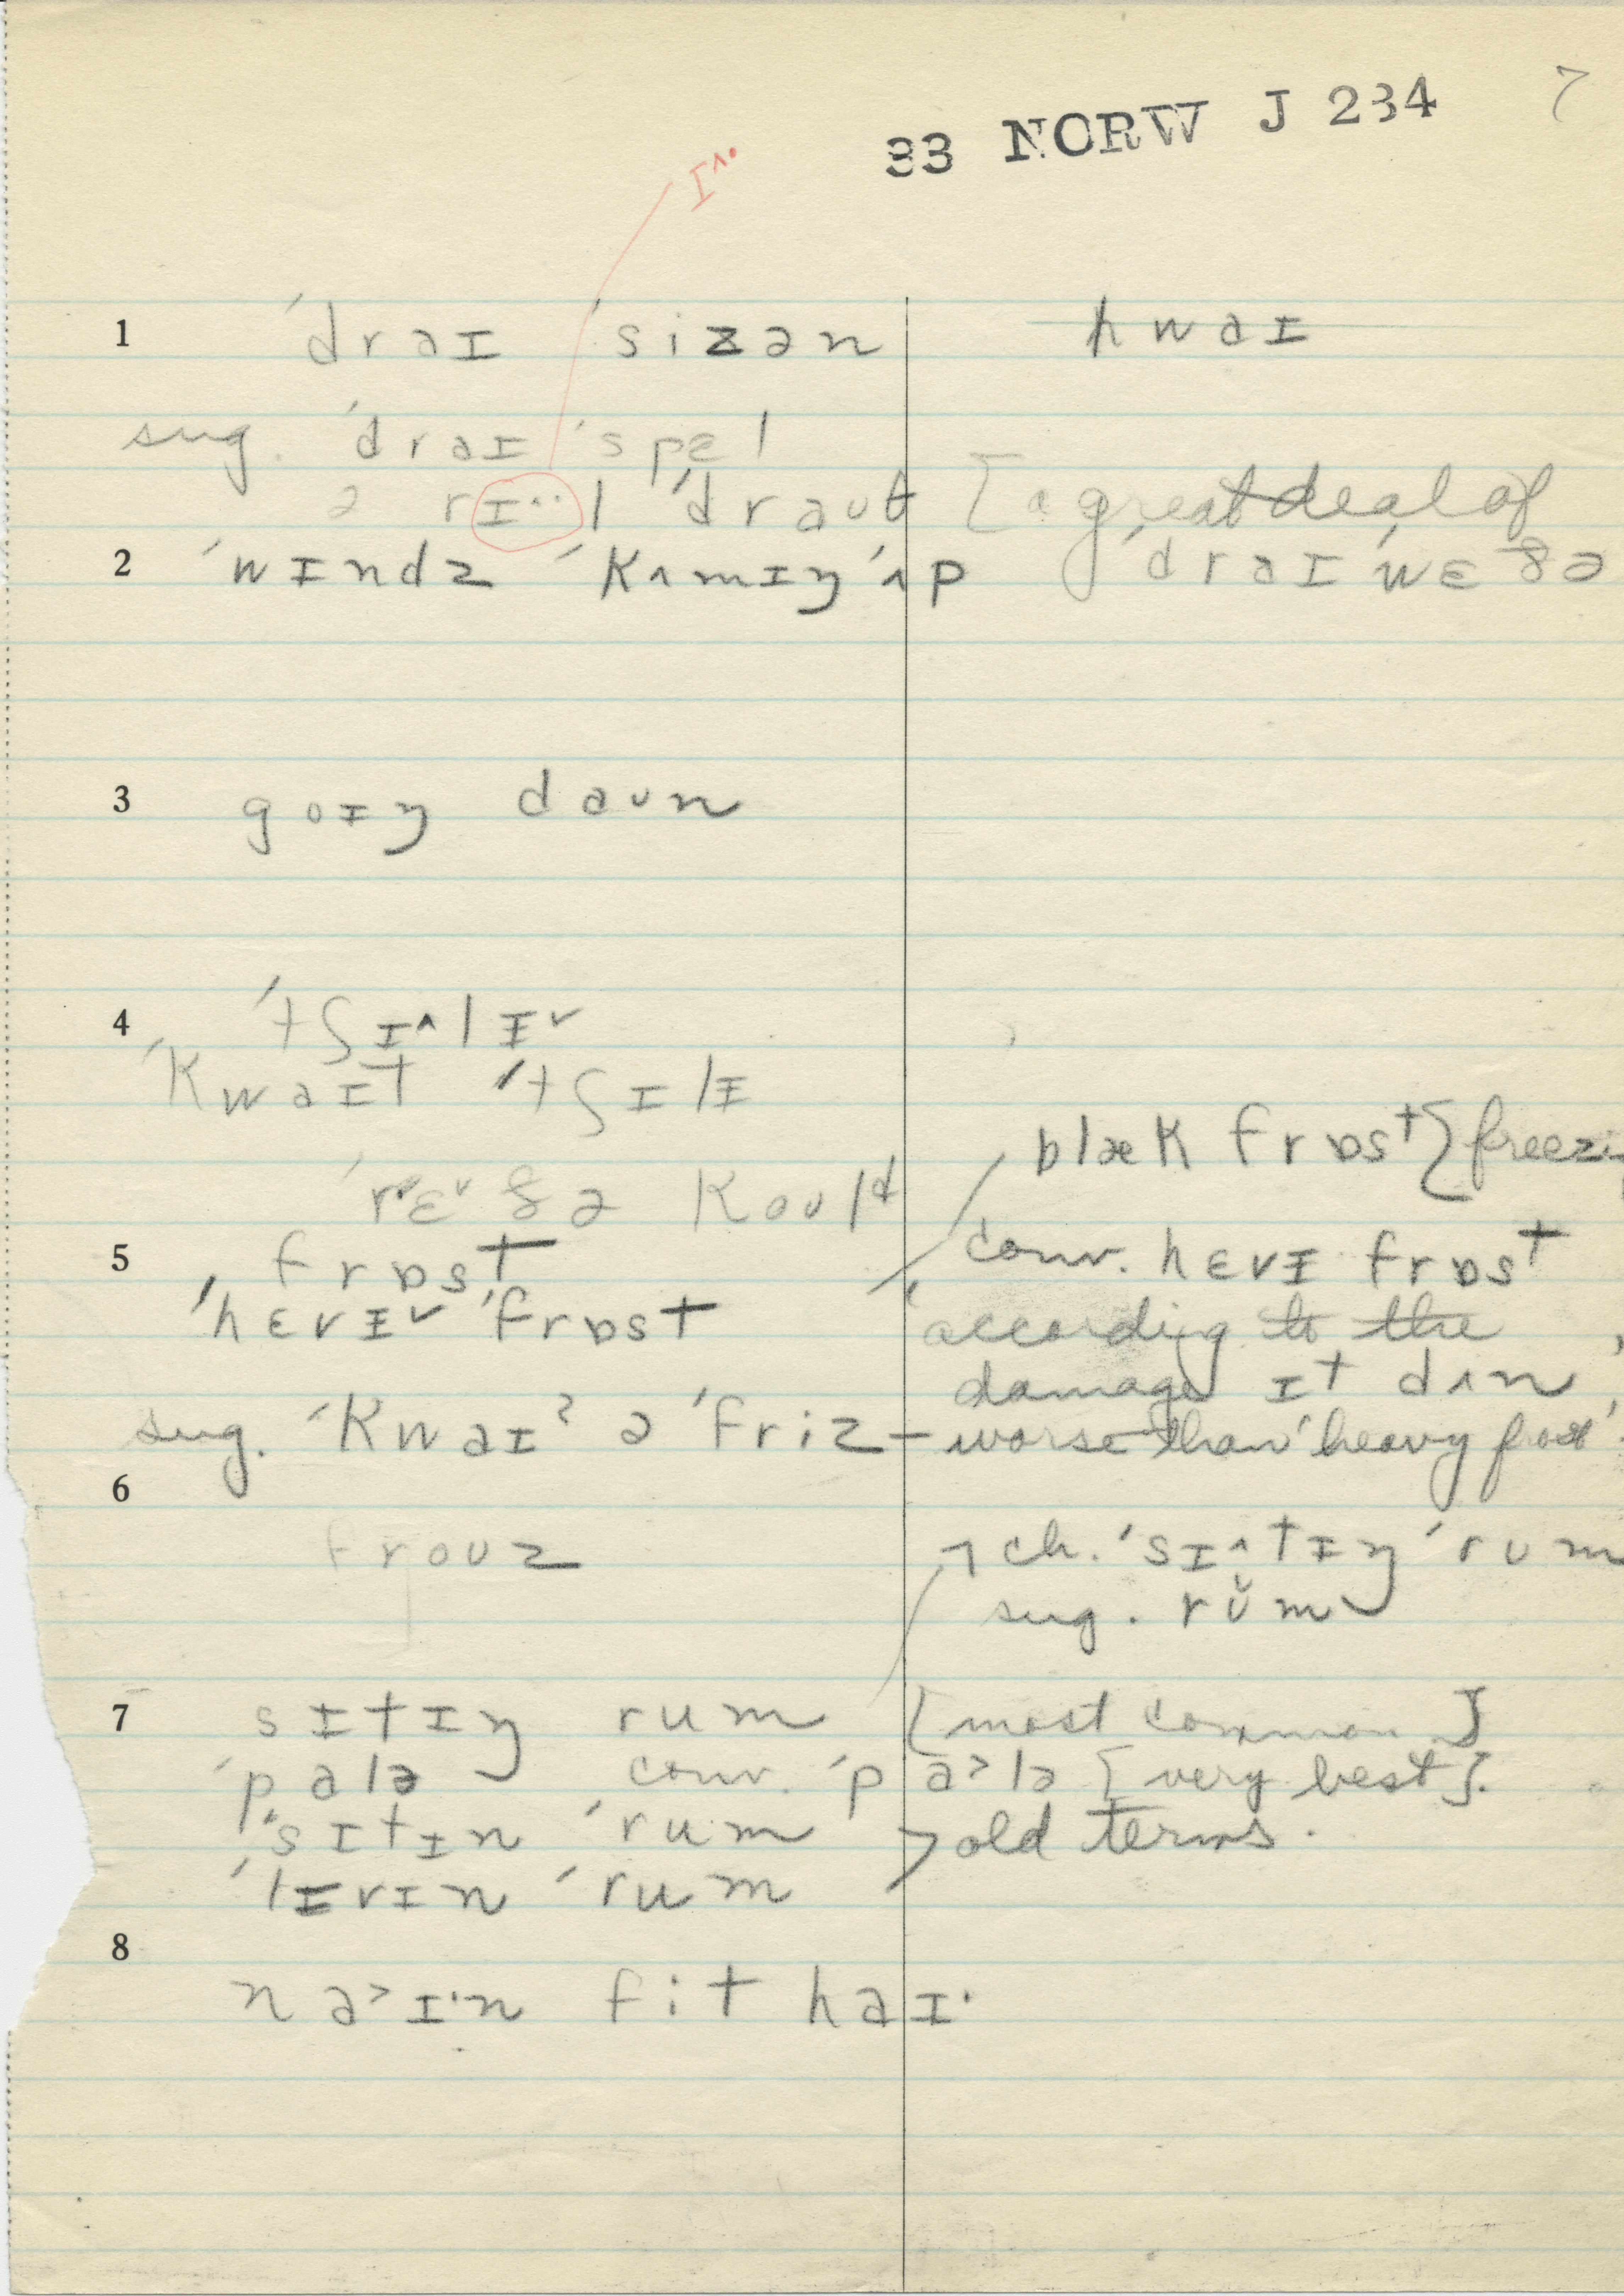 33 NORW J 234 7
ɪ^.
1 ˈdraɪ ˈsizən hwaɪ
sug. ˈdraɪ ˈspɛl
ə rɪ··l ˈdraut [a great deal of
2 ˈwɪndz ˈkʌmɪŋ ˈʌp ˈdraɪ ˈwɛðə
3 goɪŋ daʊn
4 ˈtʃɪ^lɪˇ
ˈkwaɪt ˈtʃɪlɪ
ˈrɛˇðə koʊld
blæk frɒst [freezi
5 frɒst
conv. hɛvɪ frɒst
ˈhɛvɪˇ ˈfrɒst
according to the
damage ɪt dʌn
sug. ˈkwaɪʔ ə ˈfriz – worse than 'heavy frost'.
6
froʊz
ch. ˈsɪ^tɪŋ ˈrum
sug. rŭm
7 sɪtɪŋ rum [most common]
ˈpalə conv. ˈpa>lə [very best].
ˈsɪtɪn ˈrum > old terms.
ˈlɪvɪn ˈrum
8
na>ɪ·n fit haɪ·